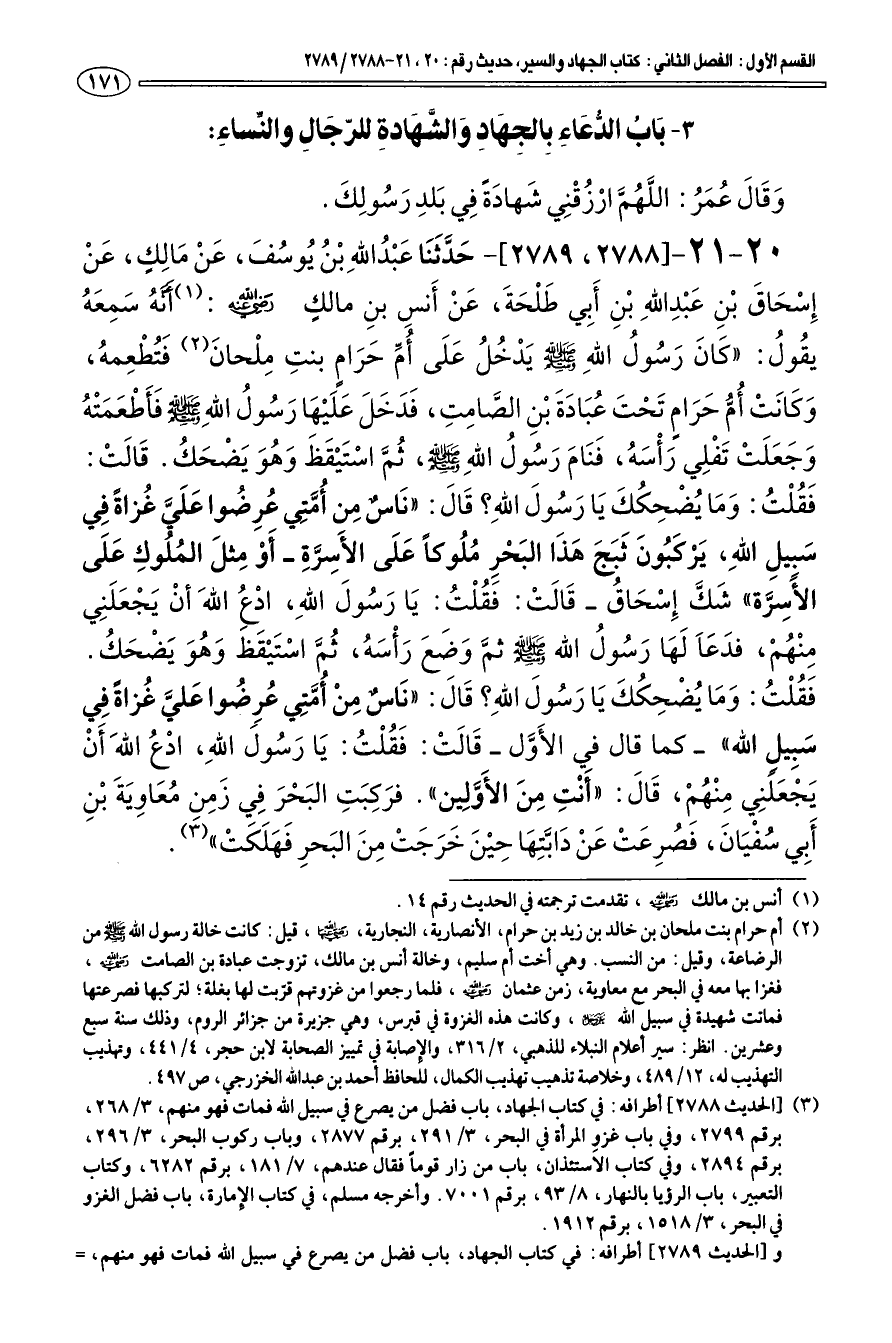 القسم الأول: الفصل الثاني: كتاب الجهاد والسير، حديث رقم: ٢٠، ٢١-٢٧٨٨/ ٢٧٨٩
١٧١
٣- بَابُ الدُّعَاءِ بِالجِهَادِ وَالشَّهَادةِ للرِّجَالِ والنِّساءِ:
وَقَالَ عُمَرُ: اللَّهُمَّ ارْزُقْنِي شَهادَةً فِي بَلَدِ رَسُولِكَ.
٢٠-٢١-[٢٧٨٨، ٢٧٨٩]- حَدَّثَنَا عَبْدُاللهِ بْنُ يُوسُفَ، عَنْ مَالِكٍ، عَنْ
إِسْحَاقَ بْنِ عَبْدِاللهِ بْنِ أَبِي طَلْحَةَ، عَنْ أنَسِ بنِ مالكٍ رضي الله عنه (١): أَنَّهُ سَمِعَهُ
يقُولُ: «كَانَ رَسُولُ اللهِ ﷺ يَدْخُلُ عَلَى أُمِّ حَرَامٍ بنتِ مِلْحانَ(٢) فَتُطْعِمهُ،
وَكَانَتْ أُمُّ حَرَامٍ تَحْتَ عُبَادَةَ بْنِ الصَّامِتِ، فَدَخَلَ عَلَيْهَا رَسُولُ اللهِ ﷺ فَأَطْعَمَتْهُ
وَجَعَلَتْ تَفْلِي رَأْسَهُ، فَنَامَ رَسُولُ اللهِ ﷺ، ثُمَّ اسْتَيْقَظَ وَهُوَ يَضْحَكُ. قَالَتْ:
فَقُلْتُ: وَمَا يُضْحِكُكَ يَا رَسُولَ اللهِ؟ قَالَ: «نَاسٌ مِن أُمَّتِي عُرِضُوا عَلَيَّ غُزاةً فِي
سَبِيلِ اللهِ، يَرْكَبُونَ ثَبَجَ هَذَا البَحْرِ مُلُوكاً عَلَى الأَسِرَّةِ ـ أَوْ مِثلَ المُلُوكِ عَلَى
الأَسِرَّة» شَكَّ إِسْحَاقُ ـ قَالَتْ: فَقُلْتُ: يَا رَسُولَ اللهِ، ادْعُ اللهَ أنْ يَجْعَلَنِي
مِنْهُمْ، فدَعَا لَهَا رَسُولُ الله ﷺ ثمَّ وَضَعَ رَأْسَهُ، ثُمَّ اسْتَيْقَظَ وَهُوَ يَضْحَكُ.
فَقُلْتُ: وَمَا يُضْحِكُكَ يَا رَسُولَ اللهِ؟ قَالَ: «نَاسٌ مِنْ أُمَّتِي عُرِضُوا عَليَّ غُزاةً فِي
سَبِيلِ الله» ـ كما قال في الأَوَّل ـ قَالَتْ: فَقُلْتُ: يَا رَسُولَ اللهِ، ادْعُ اللهَ أَنْ
يَجْعَلَنِي مِنْهُمْ، قَالَ: «أَنْتِ مِنَ الأَوَّلِين». فرَكِبَتِ البَحْرَ فِي زَمنِ مُعَاوِيَةَ بْنِ
أَبِي سُفْيَانَ، فَصُرِعَتْ عَنْ دَابَّتِهَا حِيْنَ خَرَجَتْ مِنَ البَحرِ فَهَلَكَتْ»(٣).
(١) أنس بن مالك رضي الله عنه، تقدمت ترجمته في الحديث رقم ١٤.
(٢) أم حرام بنت ملحان بن خالد بن زيد بن حرام، الأنصارية، النجارية، رضي الله عنها، قيل: كانت خالة رسول الله ﷺ من
الرضاعة، وقيل: من النسب. وهي أخت أم سليم، وخالة أنس بن مالك، تزوجت عبادة بن الصامت رضي الله عنه،
فغزا بها معه في البحر مع معاوية، زمن عثمان رضي الله عنه، فلما رجعوا من غزوتهم قرّبت لها بغلة؛ لتركبها فصرعتها
فماتت شهيدة في سبيل الله ، وكانت هذه الغزوة في قبرس، وهي جزيرة من جزائر الروم، وذلك سنة سبع
وعشرين. انظر: سير أعلام النبلاء للذهبي، ٣١٦/٢، والإصابة في تمييز الصحابة لابن حجر، ٤٤١/٤، وتهذيب
التهذيب له، ٤٨٩/١٢، وخلاصة تذهيب تهذيب الكمال، للحافظ أحمد بن عبدالله الخزرجي، ص٤٩٧.
(٣) [الحديث ٢٧٨٨] أطرافه: في كتاب الجهاد، باب فضل من يصرع في سبيل الله فمات فهو منهم، ٣/ ٢٦٨،
برقم ٢٧٩٩، وفي باب غزو المرأة في البحر، ٣/ ٢٩١، برقم ٢٨٧٧، وباب ركوب البحر، ٣/ ٢٩٦،
برقم ٢٨٩٤، وفي كتاب الاستئذان، باب من زار قوماً فقال عندهم، ٧/ ١٨١، برقم ٦٢٨٢، وكتاب
التعبير، باب الرؤيا بالنهار، ٨/ ٩٣، برقم ٧٠٠١. وأخرجه مسلم، في كتاب الإمارة، باب فضل الغزو
في البحر، ٣/ ١٥١٨، برقم ١٩١٢.
و [الحديث ٢٧٨٩] أطرافه: في كتاب الجهاد، باب فضل من يصرع في سبيل الله فمات فهو منهم، =